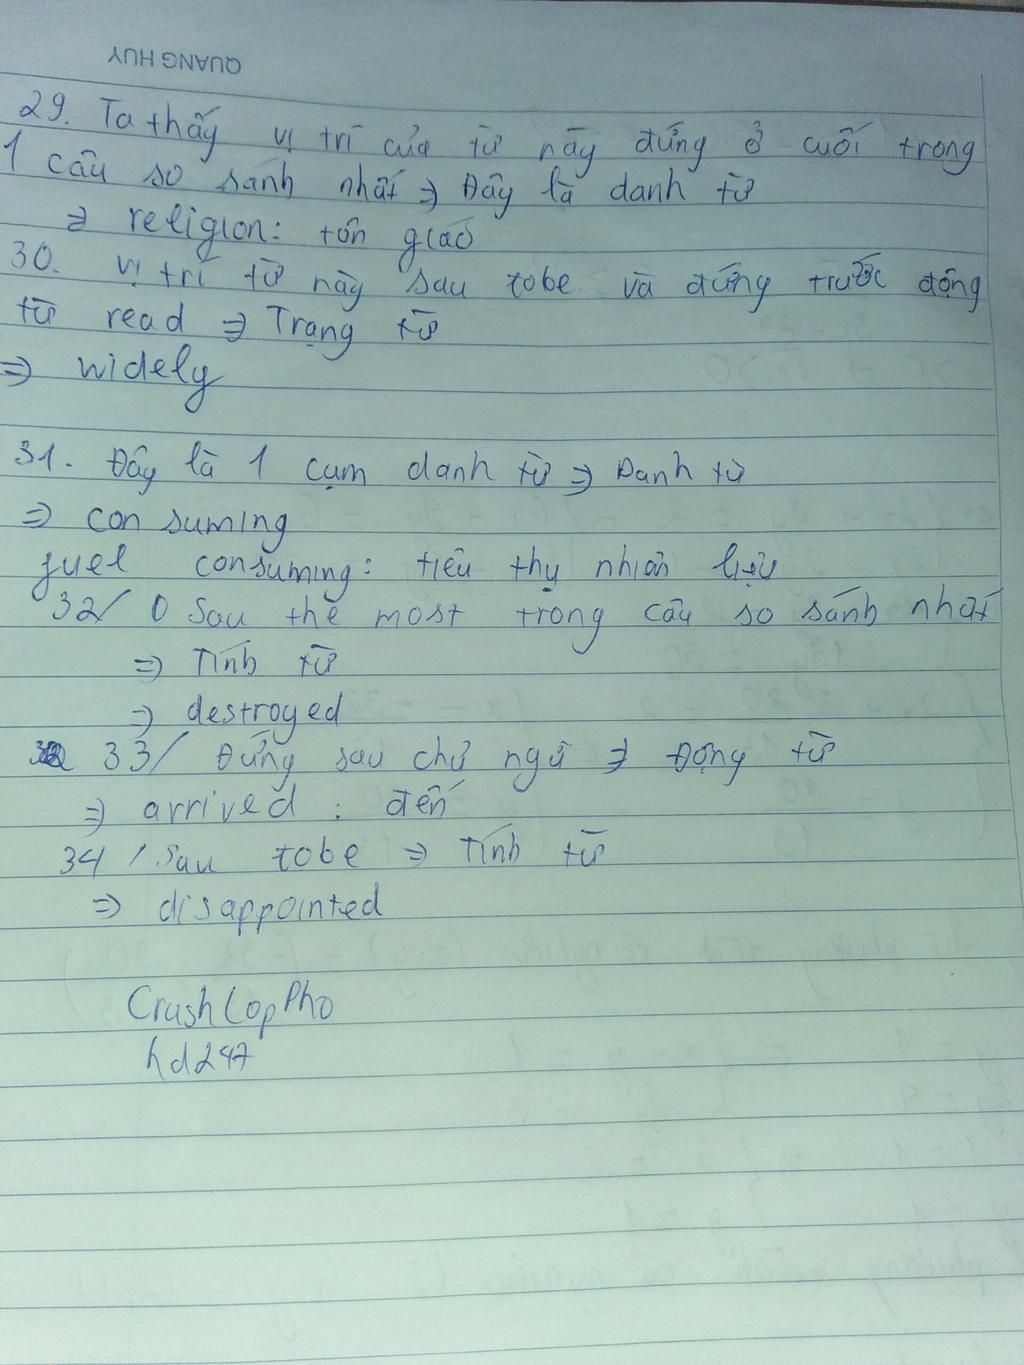 QUANG HUY
29. Ta thấy vị trí của từ này đứng ở cuối trong
1 câu so sánh nhất => Đây là danh từ
=> religion: tôn giáo
30. vị trí từ này sau tobe và đứng trước động
từ read => Trạng từ
=> widely
31. Đây là 1 cụm danh từ => Danh từ
=> con suming
fuel consuming: tiêu thụ nhiên liệu
32/ 0 Sau the most trong câu so sánh nhất
=> Tính từ
=> destroyed
33/ Đứng sau chủ ngữ => Động từ
=> arrived : đến
34 / Sau tobe => Tính từ
=> disappointed
CrushLopPho
hd247